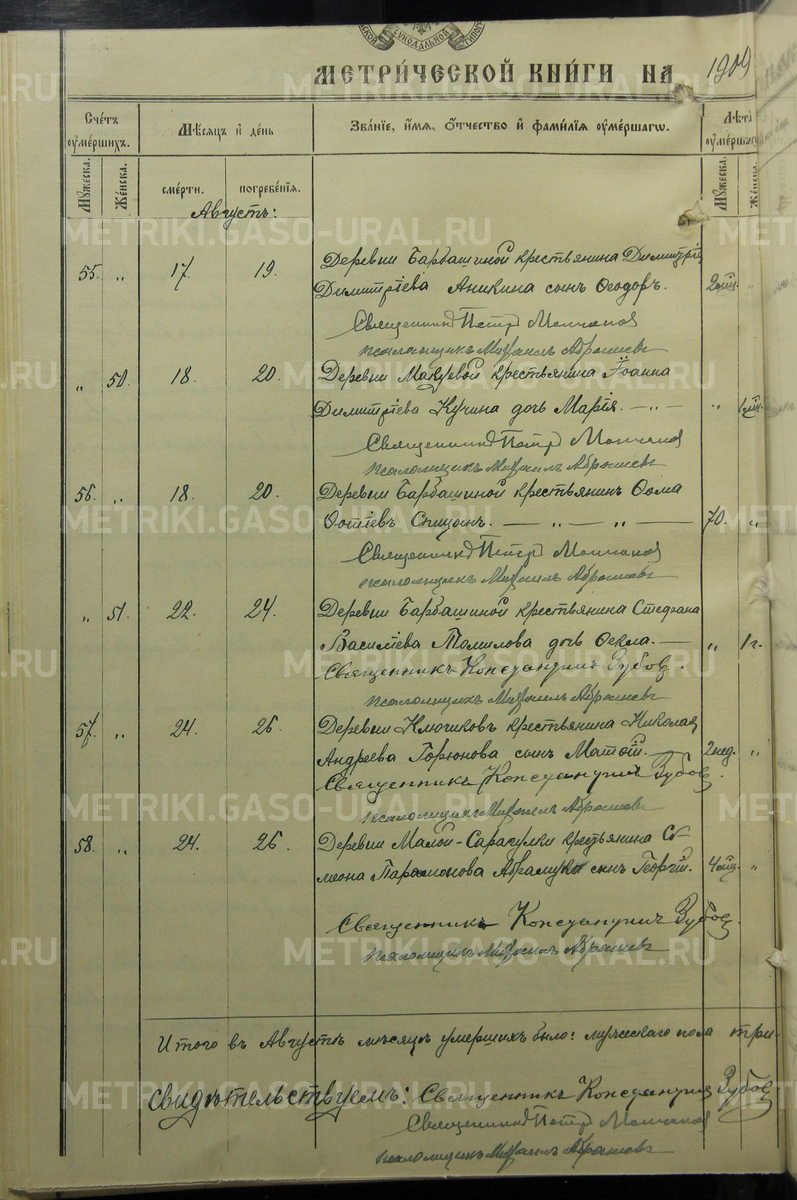 СѴНОДАЛЬНОЙ
МЕТРИ́ЧЕСКОЙ КНИ́ГИ НА 1909
Сче́тъ ѹме́ршихъ.
Мѣ́сяцъ и҆ де́нь
Зва́нїе, и҆́мя, ѻ҆́тчество и҆ фами́лїя ѹме́ршагѡ.
Лѣ́та ѹме́ршаго
Мꙋ́жеска.
Же́нска.
сме́рти.
погребе́нїя.
Мꙋ́жеска.
Же́нска.
Августъ:
55. „ 17. 19. Деревни Барбашиной крестьянина Димитрія
Димитріева Аникина сынъ Ѳеодоръ. 2 мц. „
Священникъ Петръ Молчановъ
псаломщикъ Михаилъ Абрашевъ
„ 50. 18. 20. Деревни Макуевой крестьянина Іоанна
Димитріева Кучина дочь Марія. — „ — „ 1 мц.
Священникъ Петръ Молчановъ
псаломщикъ Михаилъ Абрашевъ
56. „ 18. 20. Деревни Барбашиной крестьянинъ Ѳома
Ѳотіевъ Спицынъ. — „ — „ — 70. „
Священникъ Петръ Молчановъ
псаломщикъ Михаилъ Абрашевъ
„ 51. 22. 24. Деревни Барбашиной крестьянина Стефана
Василіева Томилова дочь Ѳекла. — „ 1 г.
Священникъ Константинъ Зубовъ.
псаломщикъ Михаилъ Абрашевъ
57. „ 24. 26. Деревни Ключиковъ крестьянина Николая
Андреева Горюнова сынъ Матѳій. — 2 нед. „
Священникъ Константинъ Зубовъ.
псаломщикъ Михаилъ Абрашевъ
58. „ 24. 26. Деревни Малой-Сарапулки крестьянина Си-
меона Парамонова сынъ Георгій. 4 мц. „
Священникъ Константинъ Зубовъ.
псаломщикъ Михаилъ Абрашевъ
Итого въ Августѣ мѣсяцѣ умершихъ было: мужескаго пола три-
свидѣтельствуемъ: Священникъ Константинъ Зубовъ
Священникъ Петръ Молчановъ
псаломщикъ Михаилъ Абрашевъ
METRIKI.GASO-URAL.RU